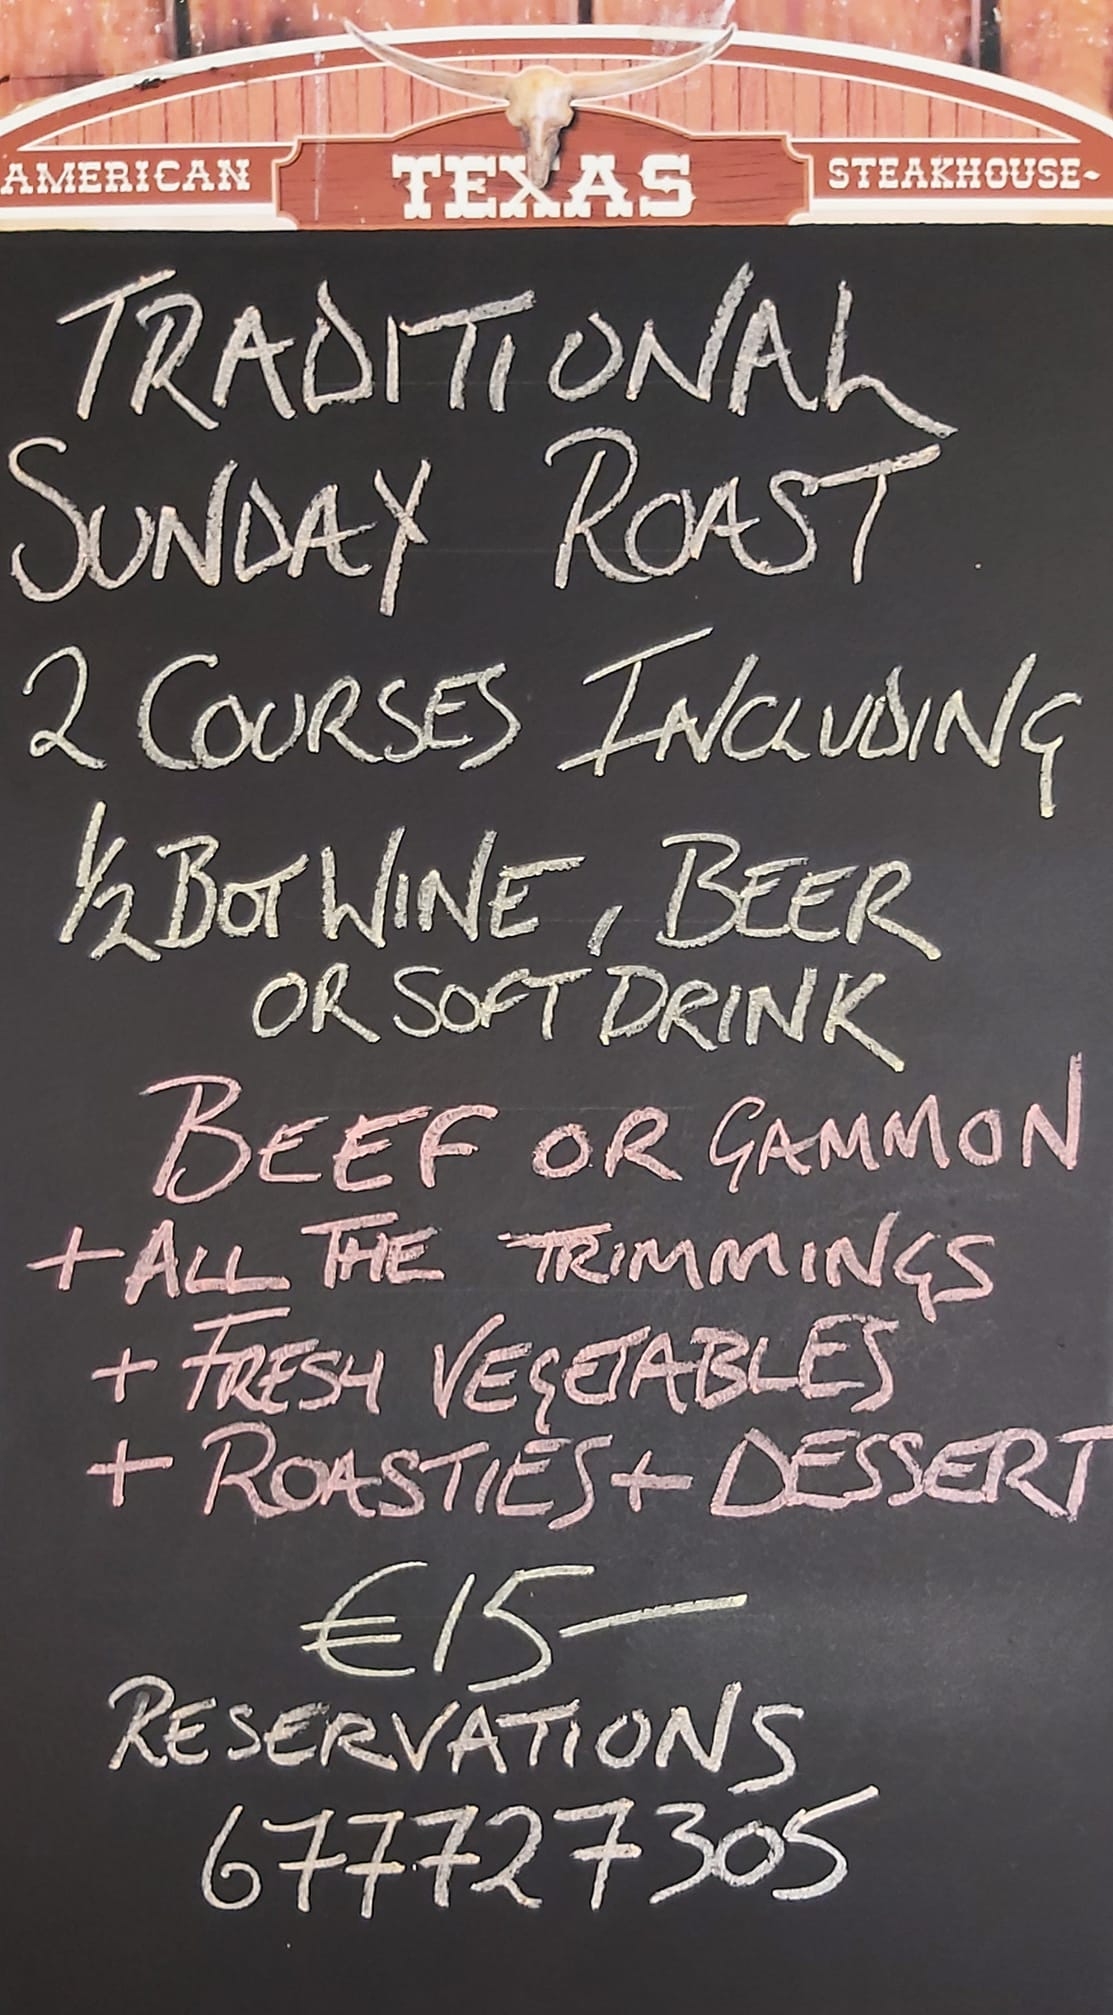 AMERICAN TEXAS STEAKHOUSE~
TRADITIONAL
SUNDAY ROAST
2 COURSES INCLUDING
½ BOT WINE, BEER
OR SOFT DRINK
BEEF OR GAMMON
+ ALL THE TRIMMINGS
+ FRESH VEGETABLES
+ ROASTIES + DESSERT
€15—
RESERVATIONS
677727305